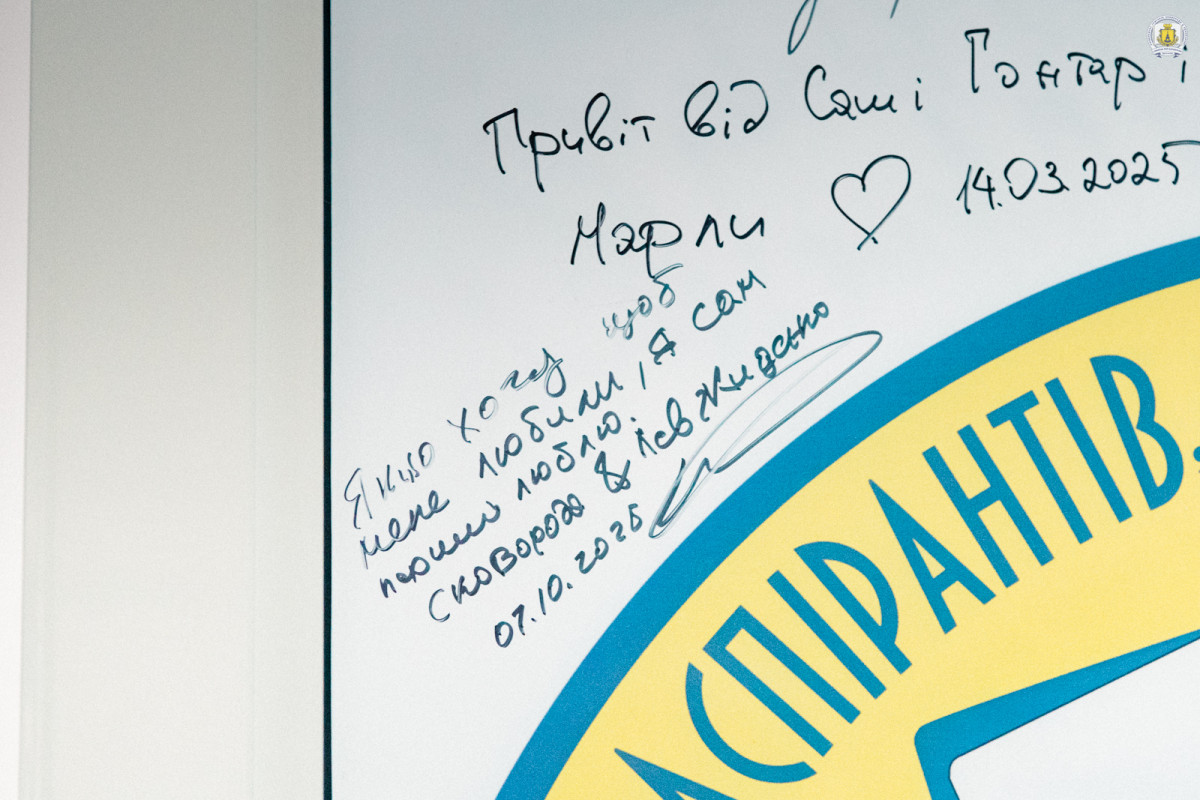 Привіт від Саші Гонтар і
Марли ♡ 14.03.2025
Якщо хочу щоб
мене любили, я сам
першим люблю.
Сковорода & Лев Жиденко
07.10.2025
АСПІРАНТІВ,